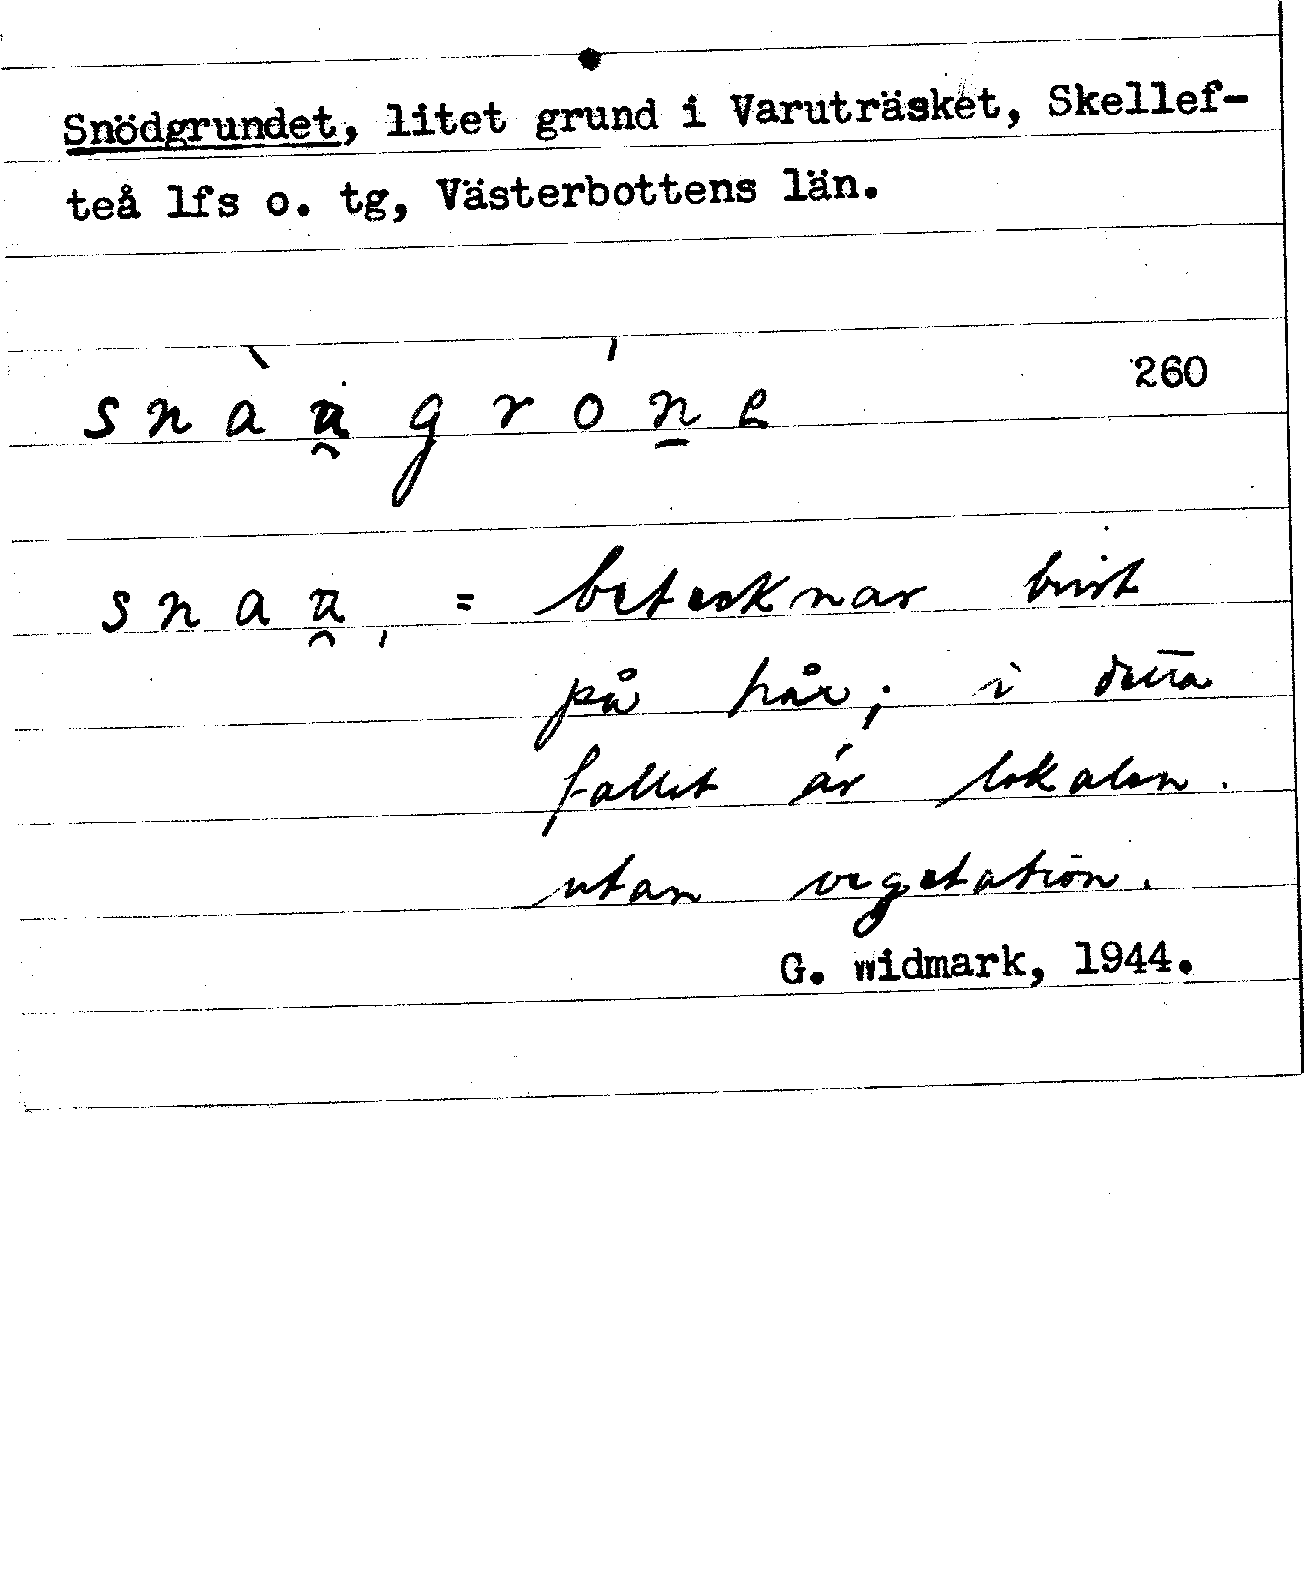 Snödgrundet, litet grund i Varuträsket, Skellef-
teå lfs o. tg, Västerbottens län.
260
snàu̯gróṉe
snau̯, = betecknar brist
på hår; i detta
fallet är lokalen
utan vegetation.
G. widmark, 1944.